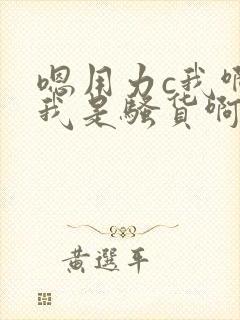 嗯用力c我啊
我是骚货啊
黄選平